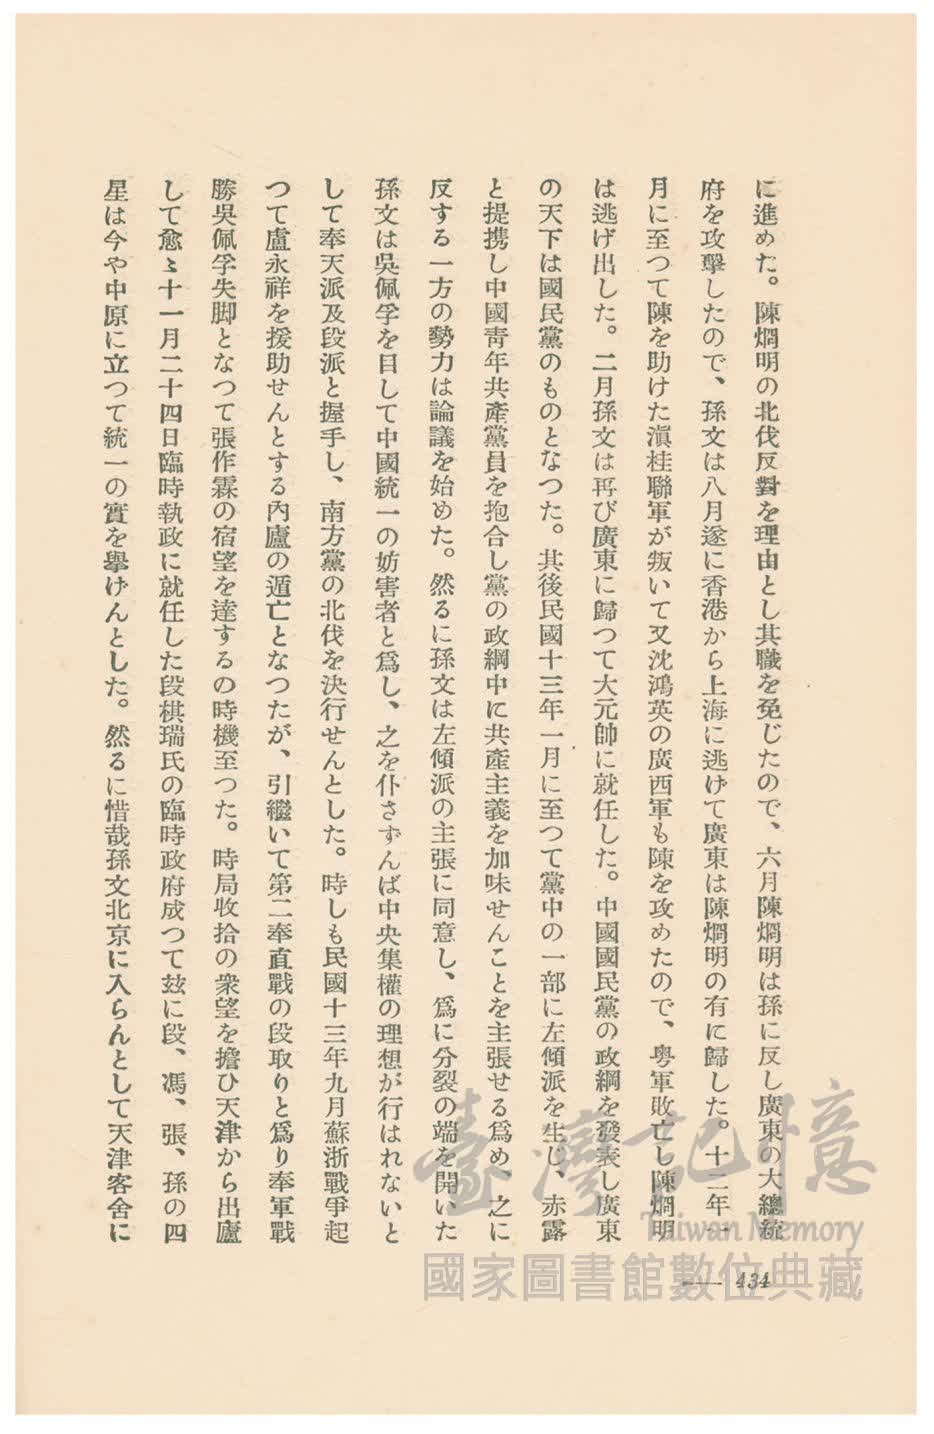 に進めた。陳烱明の北伐反對を理由とし其職を免じたので、六月陳烱明は孫に反し廣東の大總統
府を攻擊したので、孫文は八月遂に香港から上海に逃げて廣東は陳烱明の有に歸した。十二年一
月に至つて陳を助けた滇桂聯軍が叛いて又沈鴻英の廣西軍も陳を攻めたので、粤軍敗亡し陳烱明
は逃げ出した。二月孫文は再び廣東に歸つて大元帥に就任した。中國國民黨の政綱を發表し廣東
の天下は國民黨のものとなつた。其後民國十三年一月に至つて黨中の一部に左傾派を生じ、赤露
と提携し中國靑年共產黨員を抱合し黨の政綱中に共產主義を加味せんことを主張せる爲め、之に
反する一方の勢力は論議を始めた。然るに孫文は左傾派の主張に同意し、爲に分裂の端を開いた
孫文は吳佩孚を目して中國統一の妨害者と爲し、之を仆さずんば中央集權の理想が行はれないと
して奉天派及段派と握手し、南方黨の北伐を決行せんとした。時しも民國十三年九月蘇浙戰爭起
つて盧永祥を援助せんとする內盧の遁亡となつたが、引繼いて第二奉直戰の段取りと爲り奉軍戰
勝吳佩孚失脚となつて張作霖の宿望を達するの時機至つた。時局收拾の衆望を擔ひ天津から出廬
して愈〻十一月二十四日臨時執政に就任した段棋瑞氏の臨時政府成つて玆に段、馮、張、孫の四
星は今や中原に立つて統一の實を擧げんとした。然るに惜哉孫文北京に入らんとして天津客舍に
— 434
臺灣記憶
Taiwan Memory
國家圖書館數位典藏